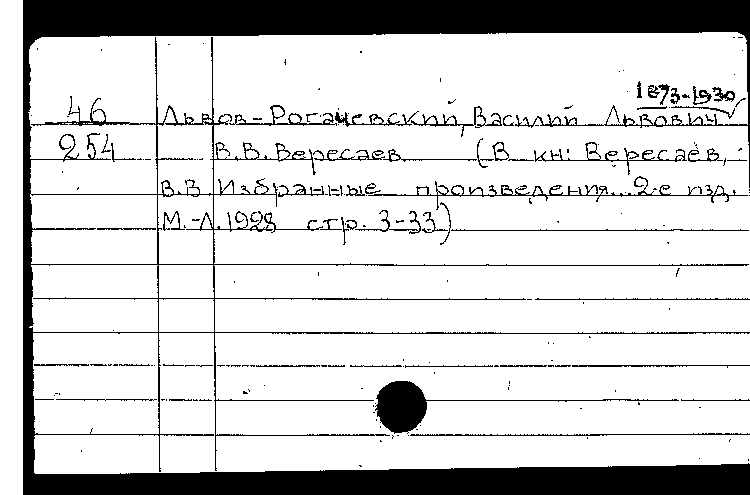 1873-1930
46 Львов-Рогачевский, Василий Львович
254 В.В.Вересаев (В кн: Вересаев,
В.В. Избранные произведения. 2-е изд.
М.-Л. 1928 стр. 3-33)